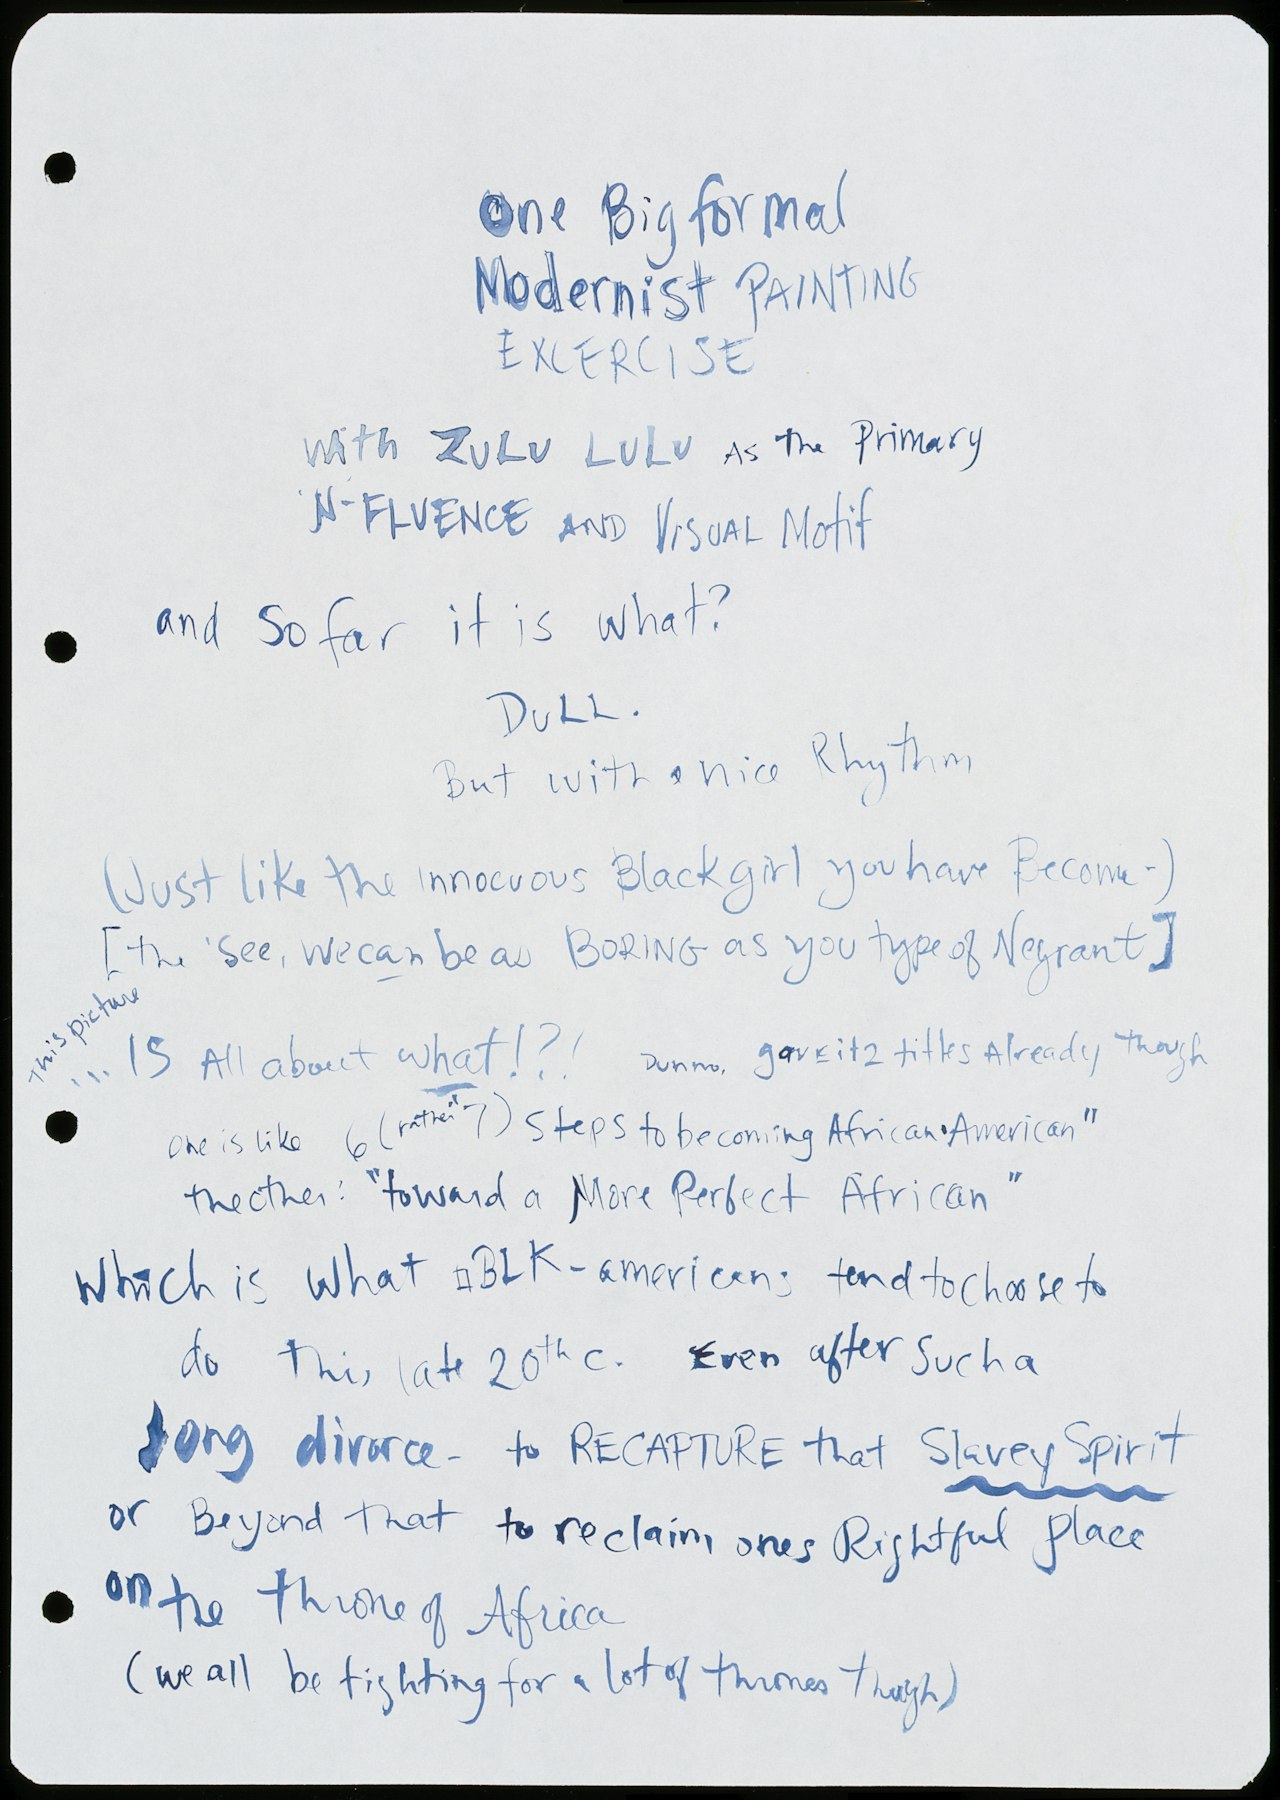 One Big formal
Modernist PAINTING
EXCERCISE
with ZULU LULU As the Primary
N-FLUENCE AND VISUAL Motif
and So far it is what?
DULL.
But with a nice Rhythm
(Just like the innocuous Black girl you have Become-)
[the 'see, we can be as BORING as you type of Negrant]
This picture
... IS All about what!?! Dunno, gave it 2 titles Already though
one is like 6 (rather "7) Steps to becoming African·American"
the other: "toward a More Perfect African"
Which is what BLK-americans tend to choose to
do this late 20th c. Even after Such a
long divorce- to RECAPTURE that Slavey Spirit
or Beyond that to reclaim ones Rightful place
on the Throne of Africa
(we all be fighting for a lot of thrones though)